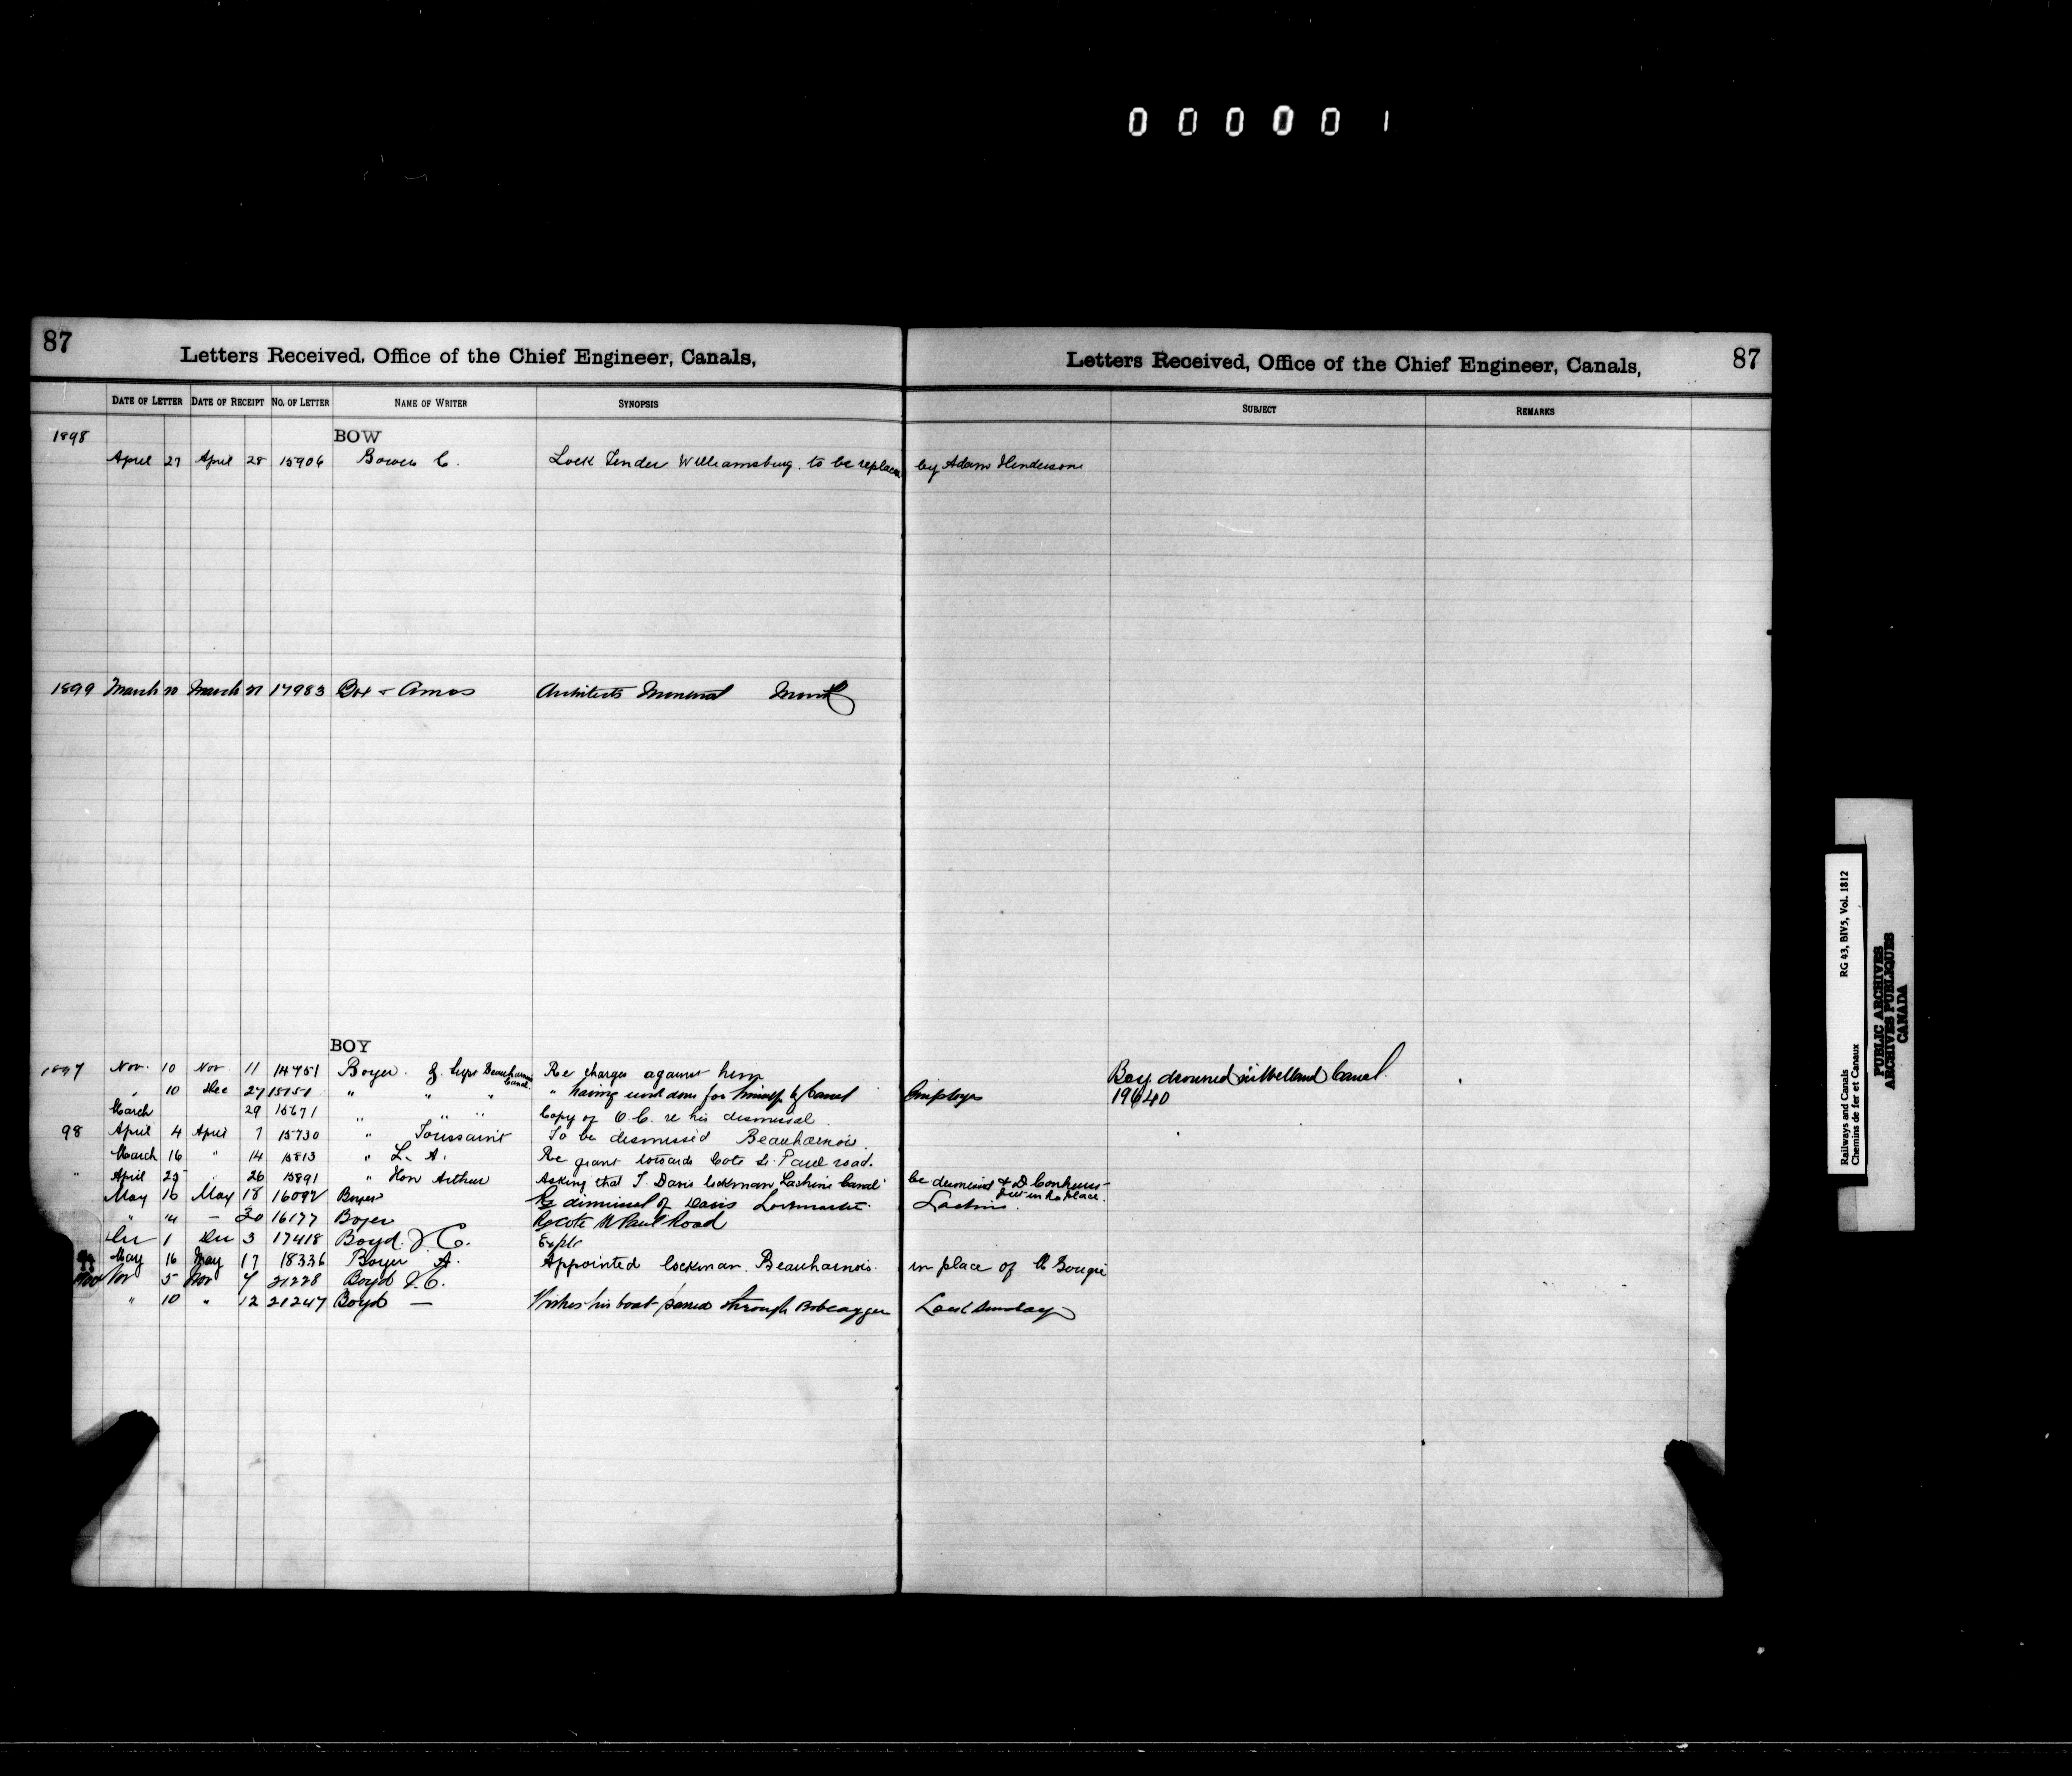 000001
87
Letters Received, Office of the Chief Engineer, Canals,
Letters Received, Office of the Chief Engineer, Canals,
87
DATE OF LETTER DATE OF RECEIPT NO. OF LETTER NAME OF WRITER SYNOPSIS
SUBJECT REMARKS
1898 BOW
April 27 April 28 15906 Bowen C. Lock Tender Williamsburg. to be replaced by Adam Henderson
1899 March 20 March 21 17983 Box & Amos Architects Montreal
BOY
1897 Nov. 10 Nov 11 14751 Boyer. Supt Beauharnois Canal Re charges against him
Boy drowned in Welland Canal.
" 10 Dec 27 15151 " " " " having work done for himself by Canal Employees 19640
March 29 15671 " " " Copy of O.C. re his dismissal
98 April 4 April 7 15730 " Toussaint To be dismissed Beauharnois.
March 16 " 14 15813 " L. A. Re grant towards Cote St. Paul road.
" April 25 " 26 15891 " Hon Arthur Asking that T. Davis lockman, Lachine Canal be dismissed & D put in his place.
May 16 May 18 16092 Boyer Re dismissal of Davis Lockmaster. Lachine.
" " 20 16177 Boyer Re Cote St Paul Road
Dec 1 Dec 3 17418 Boyd. J. C.
99 May 16 May 17 18336 Boyer A. Appointed lockman. Beauharnois. in place of
Nov 5 Nov 7 21228 Boyd J. C.
" 10 " 12 21247 Boyd — Wishes his boat passed through Bobcaygeon Lock Sunday
Railways and Canals RG 43, BIV5, Vol. 1812
Chemins de fer et Canaux
PUBLIC ARCHIVES
ARCHIVES PUBLIQUES
CANADA